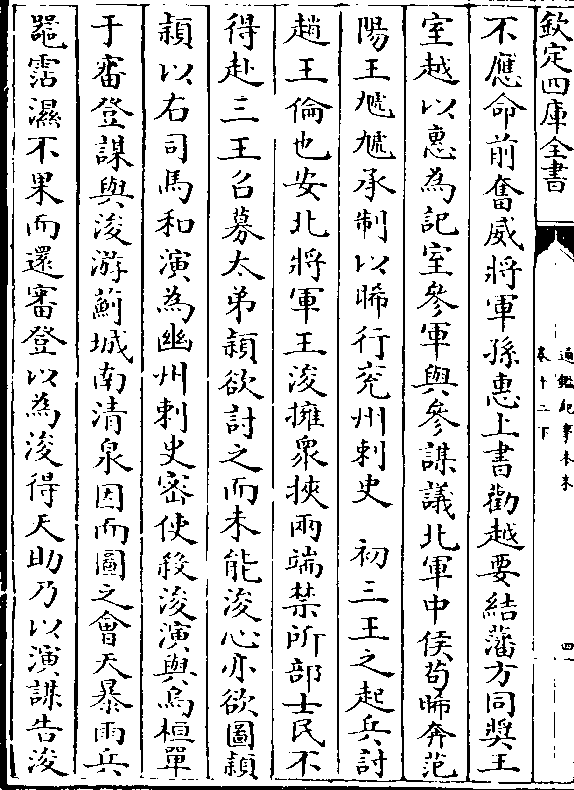 欽定四庫全書
通鑑紀事本末
卷十二下
四
不應命前奮威將軍孫惠上書勸越要結藩方同奬王
室越以惠為記室參軍與參謀議北軍中侯茍晞奔范
陽王虓虓承制以晞行兖州刺史　初三王之起兵討
趙王倫也安北將軍王浚擁衆挾兩端禁所部士民不
得赴三王召募太弟穎欲討之而未能浚心亦欲圖穎
穎以右司馬和演為幽州刺史密使殺浚演與烏桓單
于審登謀與浚游薊城南清泉因而圖之會天暴雨兵
器霑濕不果而還審登以為浚得天助乃以演謀告浚